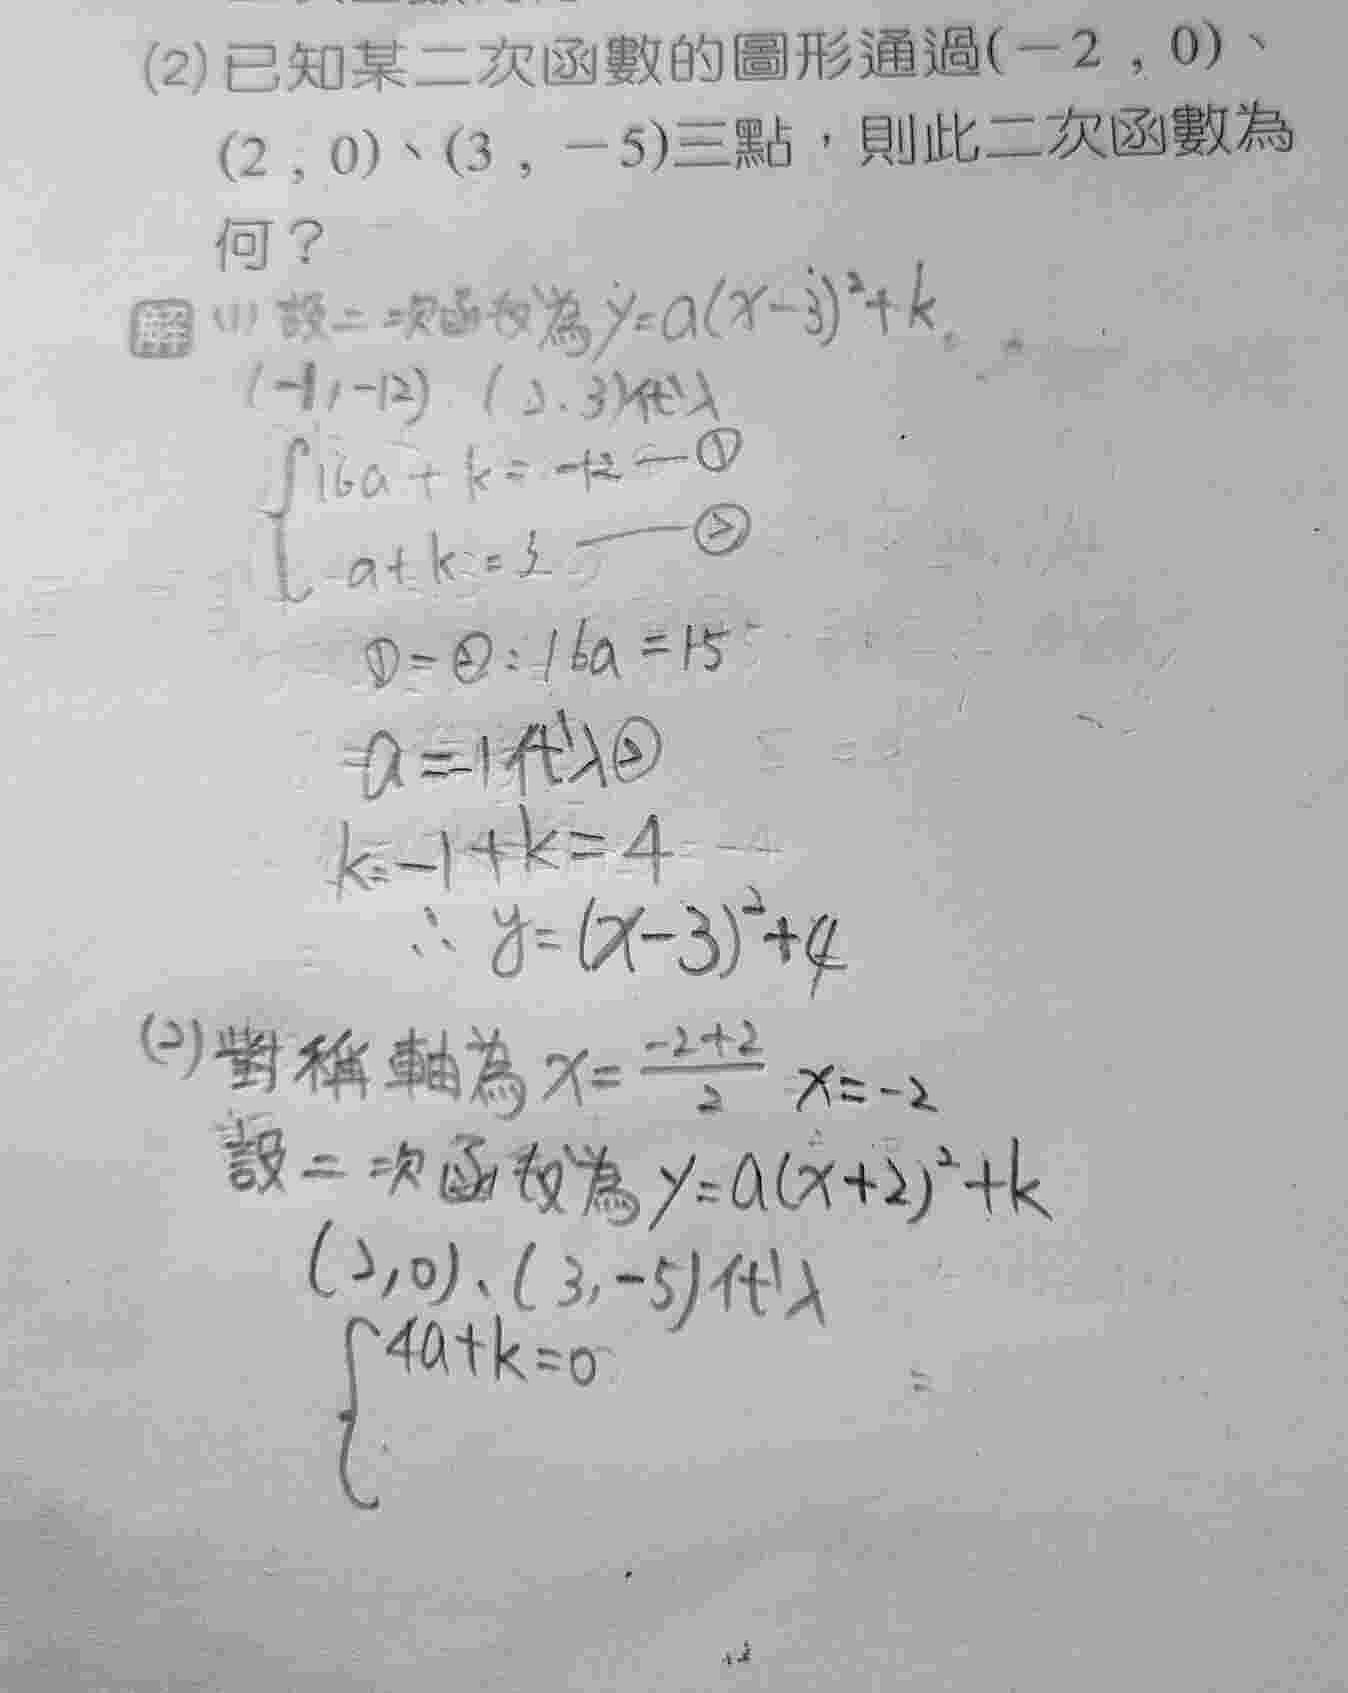 (2)已知某二次函數的圖形通過(－2，0)、
(2，0)、(3，－5)三點，則此二次函數為
何？
解 (1) 設二次函数為y=a(x-3)²+k
(-1,-12) (2.3)代入
16a+k=-12 — ①
a+k=3 — ②
①=②:16a=15
a=-1代入②
k=-1+k=4
∴ y=(x-3)²+4
(2)對稱軸為x=\frac{-2+2}{2} x=-2
設二次函数為y=a(x+2)²+k
(2,0)、(3,-5)代入
4a+k=0